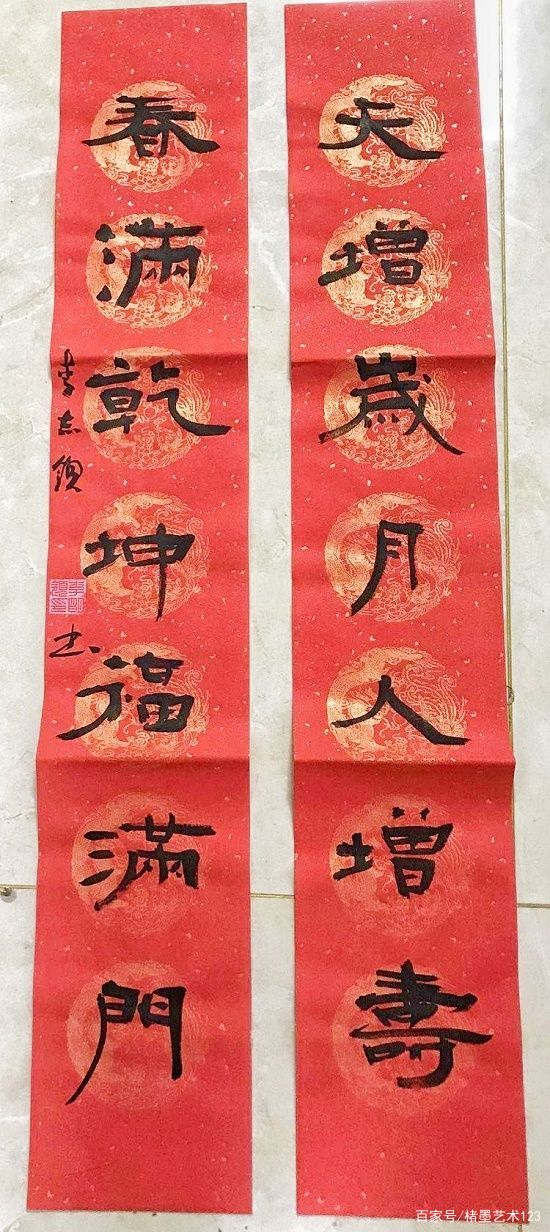 天增歲月人增壽
春滿乾坤福滿門
李志
书
百家号/楮墨艺术123